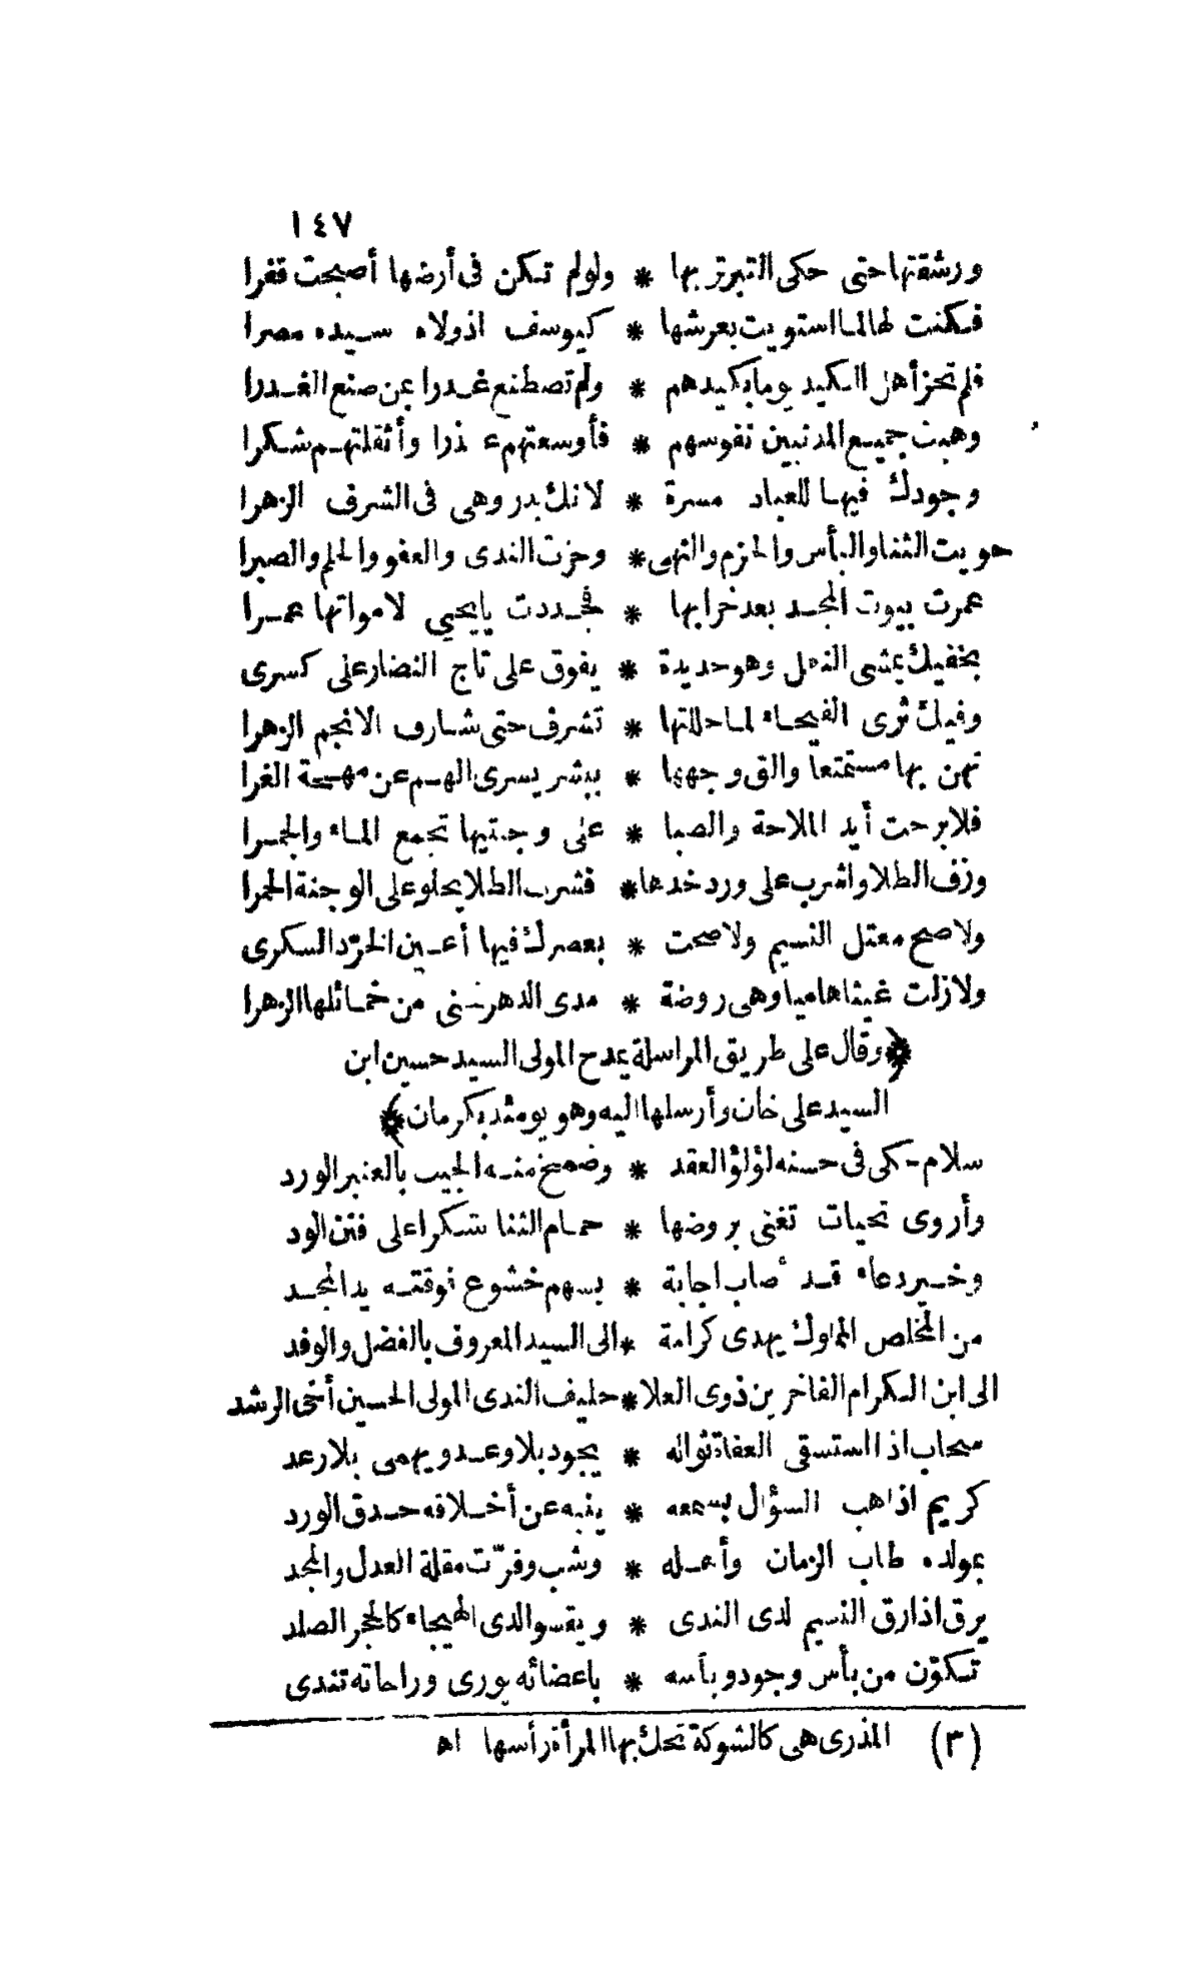 ١٤٧
ورشقتها حتى حكى التبر تربها * ولو لم تكن فى أرضها أصبحت قفرا
فكنت لها لما استويت بعرشها * كيوسف اذ ولاه سيده مصرا
فلم تحز أهل الكيد يوما بكيدهم * ولم تصطنع غدرا بمن صنع الغدرا
وهبت جميع المذنبين نفوسهم * فأوسعتهم عذرا وأثقلتهم شكرا
وجودك فيها للعباد مسرة * لانك بدر وهى فى الشرف الزهرا
حويت الثنا والبأس والحزم والنهى * وحزت الندى والعفو والحلم والصبرا
عمرت بيوت المجد بعد خرابها * فجددت يايحيى لامواتها عمرا
بخفيك يمشى النعل وهو حديدة * يفوق على تاج النضار على كسرى
وفيك ثرى الفيحاء لما حللتها * تشرف حتى شارف الانجم الزهرا
تهن بها مستمتعا والق وجهها * ببشر يسرى الهم عن مهجة الغرا
فلا برحت أيد الملاحة والصبا * على وجنتيها تجمع الماء والجمرا
وزف الطلا واشرب على ورد خدها * فشرب الطلا يحلو على الوجنة الحمرا
ولا صح معتل النسيم ولا صحت * بعصرك فيها أعين الخرّد السكرى
ولازلت غيثا هاميا وهى روضة * مدى الدهر نجنى من خمائلها الزهرا
﴿وقال على طريق المراسلة يمدح المولى السيد حسين ابن
السيد على خان وأرسلها اليه وهو يومئذ بكرمان﴾
سلام حكى فى حسنه لؤلؤ العقد * وضمخ منه الجيب بالعنبر الورد
وأروى تحيات تغنى بروضها * حمام الثنا شكرا على فنن الود
وخير دعاء قد أصاب اجابة * بسهم خشوع فوقته يد المجد
من المخلص المملوك يهدى كرامة * الى السيد المعروف بالفضل والوفد
الى ابن الكرام الفاخر بن ذوى العلا * حليف الندى المولى الحسين أخى الرشد
سحاب اذا استسقى العفاة نواله * يجود بلا وعد ويهمى بلا رعد
كريم اذا هب السؤال بسمعه * ينبه عن أخلاقه حدق الورد
بمولده طاب الزمان وأهله * وشب وقرّت مقلة العدل والمجد
يرق اذا رق النسيم لدى الندى * ويقسو لدى الهيجاء كالحجر الصلد
تكوّن من بأس وجود وبأسه * باعضائه يورى وراحاته تندى
(٣) المذرى هى كالشوكة تحك بها المرأة رأسها اه